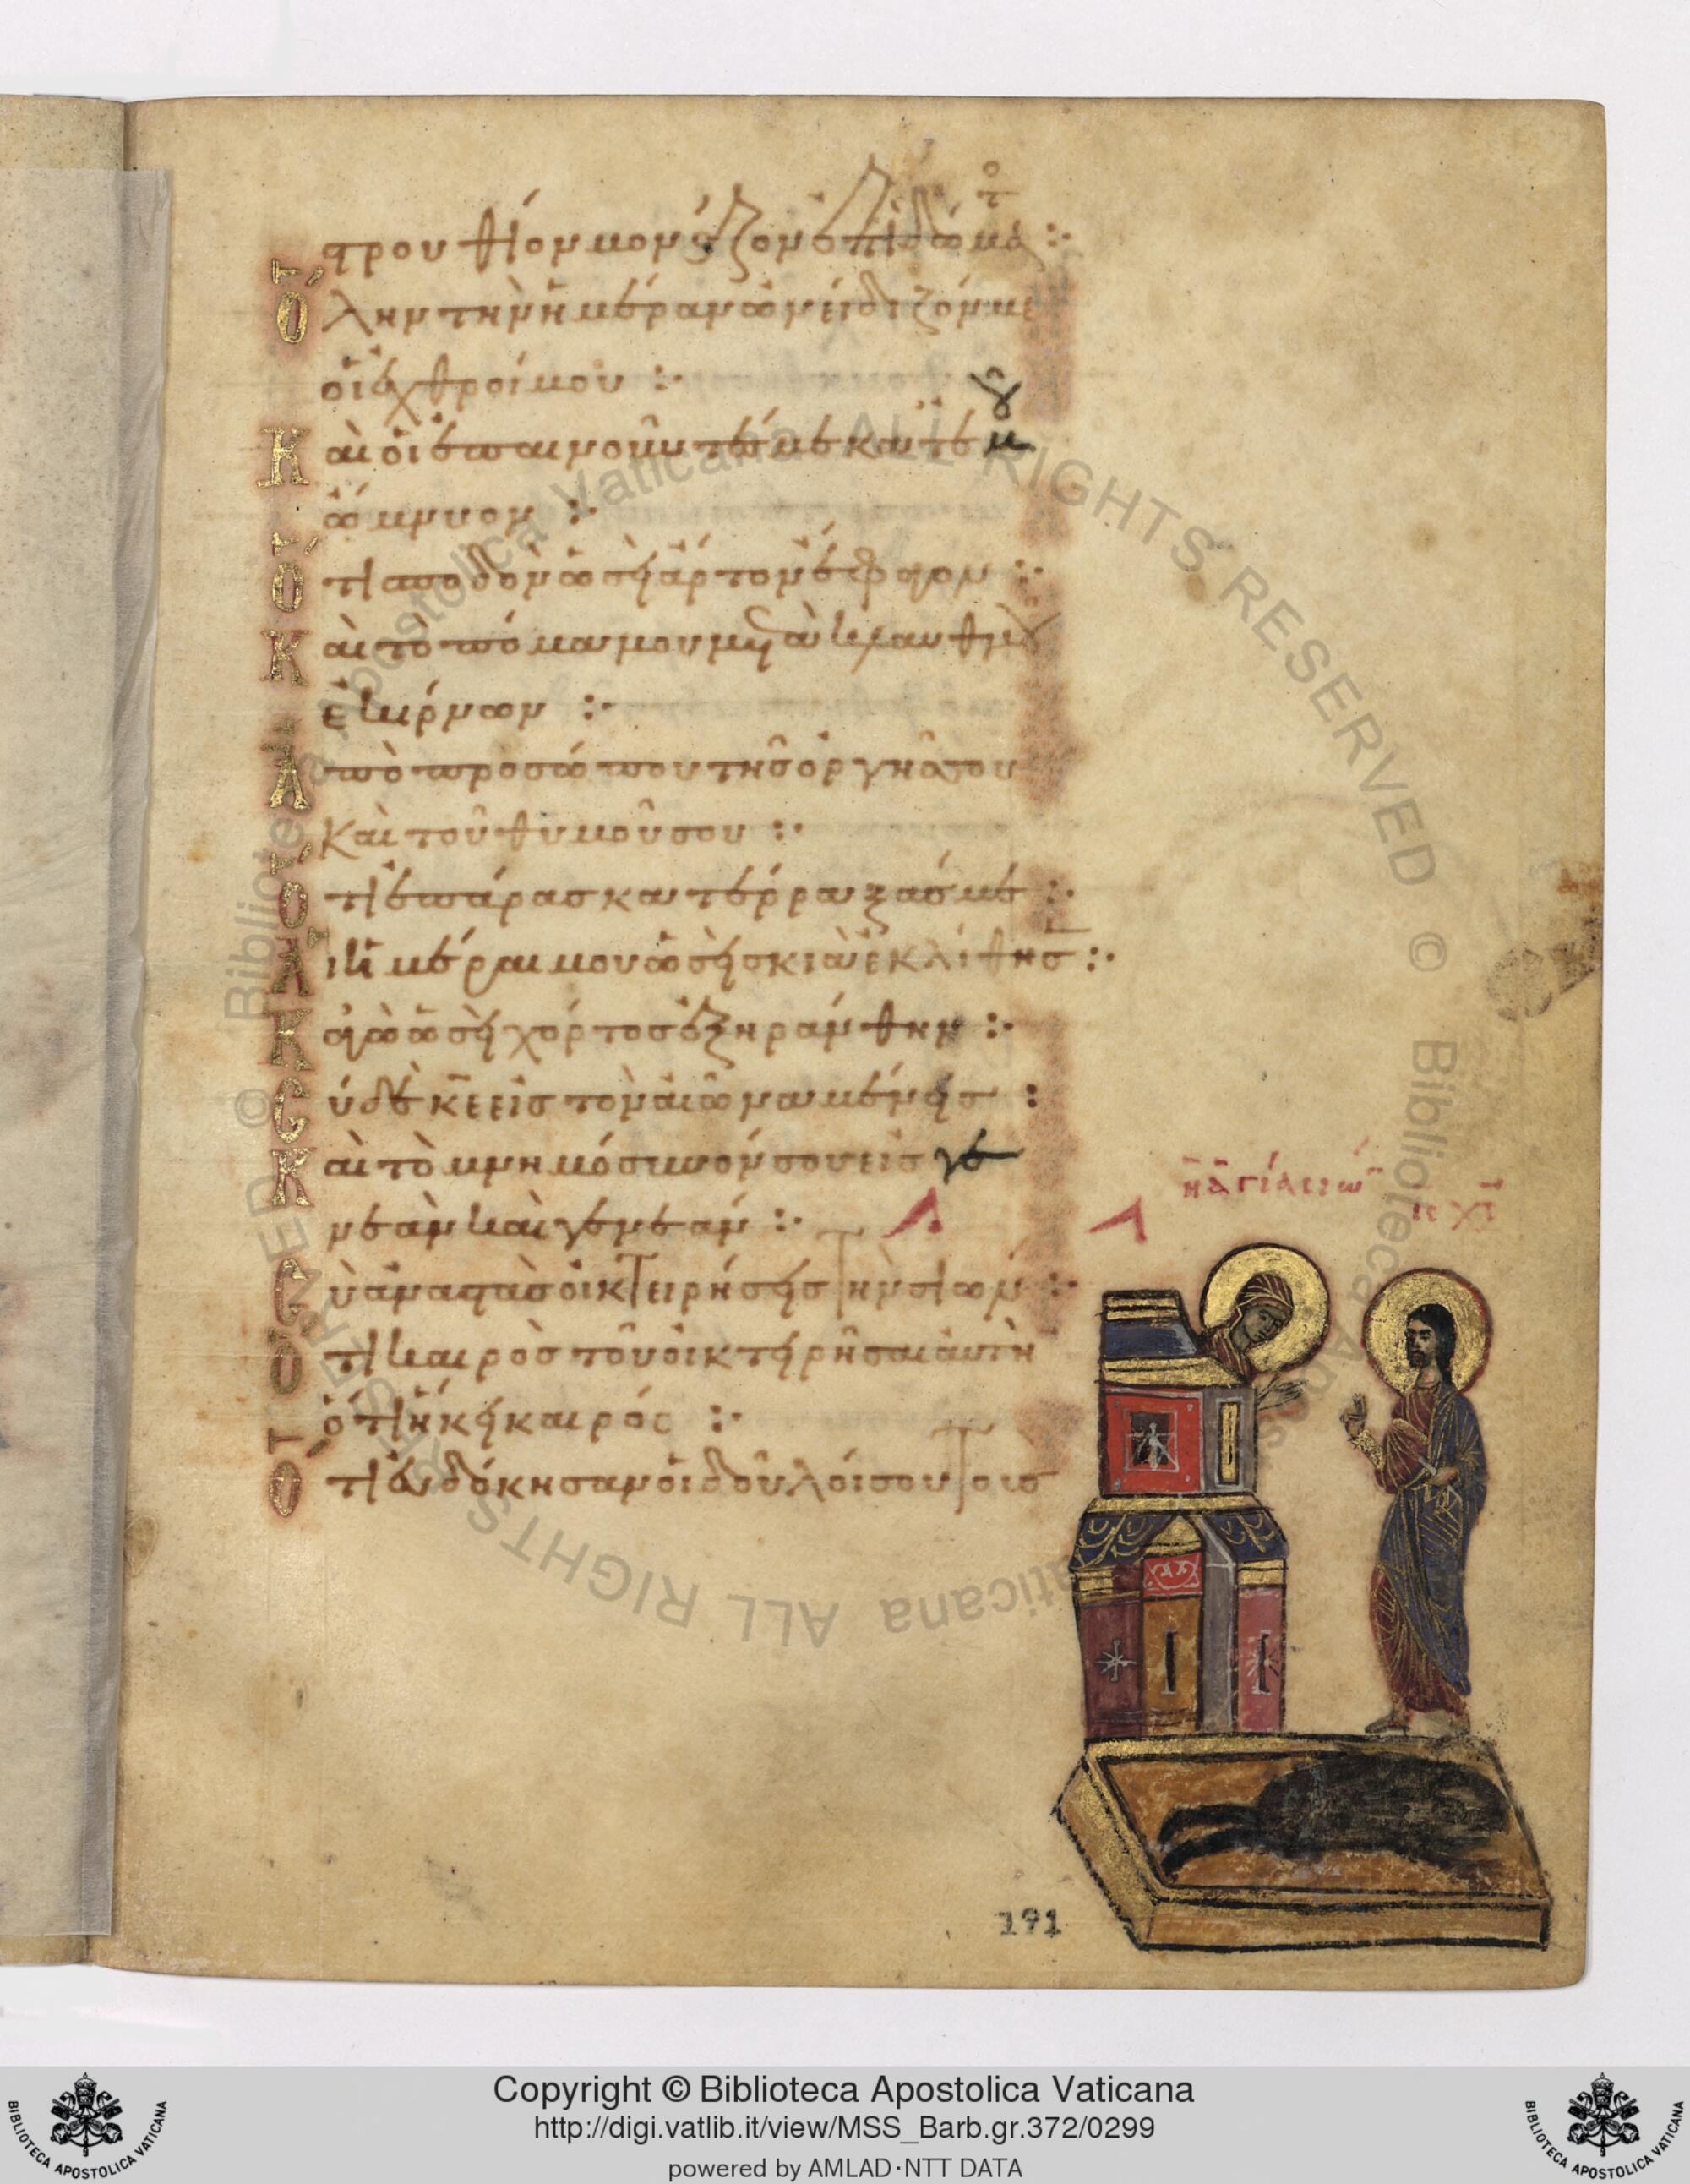 στρουθίον μονάζον ἐπὶ δώματος :·
Ὅλην τὴν ἡμέραν ὠνείδιζόν με
οἱ ἐχθροί μου :·
Καὶ οἱ ἐπαινοῦντές με κατ' ἐμοῦ
ὤμνυον :·
Ὅτι σποδὸν ὡσὴ ἄρτον ἔφαγον :·
Καὶ τὸ πόμα μου μετὰ κλαυθμοῦ
ἐκίρνων :·
Ἀπὸ προσώπου τῆς ὀργῆς σου
καὶ τοῦ θυμοῦ σου :·
Ὅτι ἐπάρας κατέρραξάς με :·
Αἱ ἡμέραι μου ὡσὴ σκιὰ ἐκλίθησ :·
Κἀγὼ ὡσὴ χόρτος ἐξηράνθην :·
Σὺ δὲ κε εἰς τὸν αἰῶνα μένης :
Καὶ τὸ μνημόσυνόν σου εἰς γε
νεὰν καὶ γενεάν :·
Σὺ ἀναστὰς οἰκτειρήσης τὴν σιών :·
Ὅτι καιρὸς τοῦ οἰκτηρῆσαι αὐτὴ
ὅτι ἥκη καιρός :·
Ὅτι εὐδόκησαν οἱ δοῦλοί σου τοὺς
ἡ ἁγία σιὼ
ὁ χς
191
Copyright © Biblioteca Apostolica Vaticana
http://digi.vatlib.it/view/MSS_Barb.gr.372/0299
powered by AMLAD·NTT DATA
BIBLIOTECA APOSTOLICA VATICANA
BIBLIOTECA APOSTOLICA VATICANA
© Biblioteca Apostolica Vaticana ALL RIGHTS RESERVED © Biblioteca Apostolica Vaticana ALL RIGHTS RESERVED